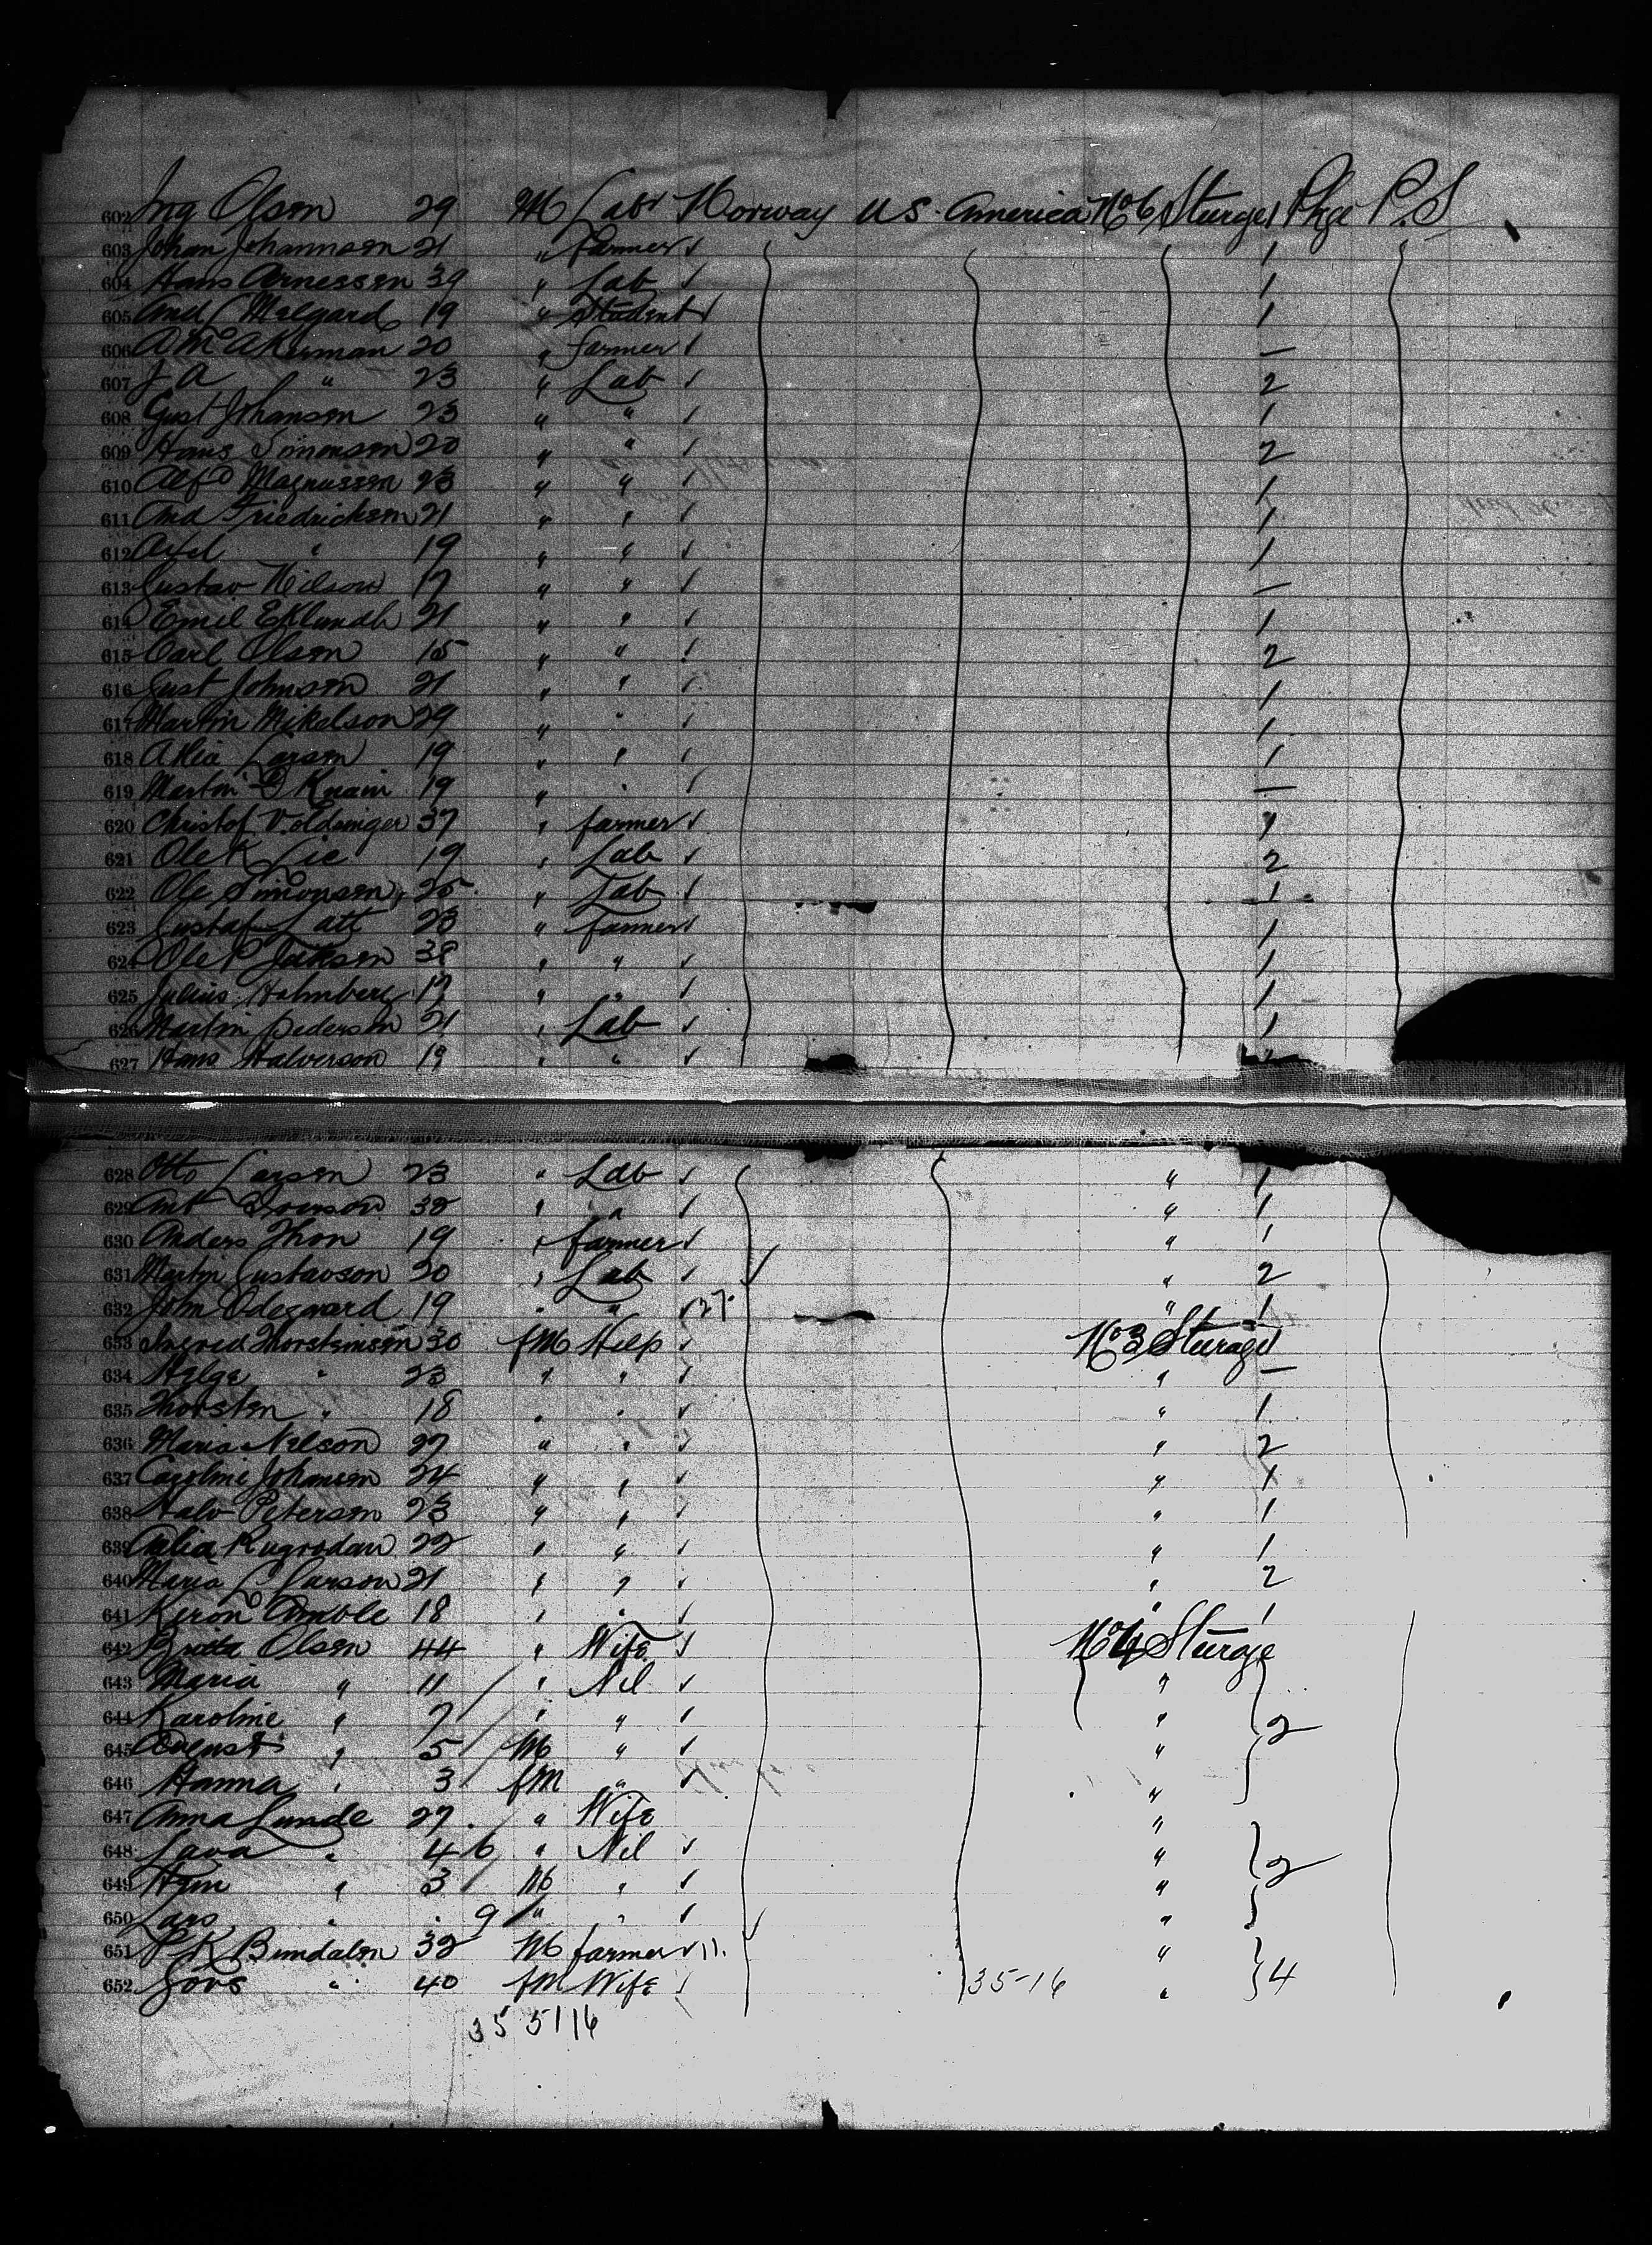 602 Ing Olson 29 M Labr Norway US. America No 6 Sturge 1 Pkge P.S
603 Johan Johannsen 21 " Farmer ✓ 1
604 Hans Arnessen 39 " Lab ✓ 1
605 And Melgard 19 " Student ✓ 1
606 A Mc Akerman 20 " farmer ✓ —
607 J A " 23 " Lab ✓ 2
608 Gust Johanson 23 " " ✓ 1
609 Hans Simonson 20 " " 2
610 Alfd Magnussen 23 " " ✓ 1
611 And Friedricksen 21 " " ✓ 1
612 Axel " 19 " " ✓ 1
613 Gustav Nilson 17 " " ✓ —
614 Emil Eklundh 21 " " 1
615 Carl Olsen 15 " " ✓ 2
616 Gust Johnson 21 " " ✓ 1
617 Martin Mikalson 29 " " ✓ 1
618 Larsen 19 " " ✓ 1
619 Martin Knain 19 " " ✓ —
620 Christof V. Eldinger 37 " farmer ✓ 1
621 Ole K Lie 19 " Lab ✓ 2
622 Ole Simonsen 25 " Lab ✓ 1
623 Gustaf Latt 23 " Farmer ✓ 1
624 Ole P Jakson 38 " " ✓ 1
625 Julius Holmberg 17 " " ✓ 1
626 Martin Pederson 21 " Lab ✓ 1
627 Hans Halverson 19 " " ✓
628 Otto Larsen 23 " Lab ✓ " 1
629 Ant Iverson 32 " " ✓ " 1
630 Anders Thon 19 " farmer ✓ " 1
631 Martin Gustavson 30 " Lab ✓ " 2
632 John Odegaard 19 " " ✓ 27. " 1
633 Ingred Thorsteinsen 30 fM Help ✓ No 3 Sturage 1
634 Helge " 23 " " ✓ " —
635 Thorsten " 18 " " ✓ " 1
636 Maria Nelson 27 " " ✓ " 2
637 Caroline Johansen 24 " " ✓ " 1
638 Halv Petersen 23 " " ✓ " 1
639 Rugrodan 22 " " ✓ " 1
640 Maria L Larson 21 " " ✓ " 2
641 Keron Amble 18 " " ✓ " 1
642 Britta Olsen 44 " Wife ✓ No 4 Sturge
643 Maria " 11 / " Nil ✓ "
644 Karoline " 7 / " " ✓ " 2
645 August " 5 / M " ✓ "
646 Hanna " 3 fM " ✓ "
647 Anna Lunde 27. " Wife "
648 Lava " 4 6 " Nil ✓ " 2
649 " 3 / M " ✓ "
650 Lars " 9 / " " ✓ "
651 P K Bundalen 32 M farmer ✓ 11. "
652 " 40 fM Wife ✓ 35-16 " 4
35 51 16